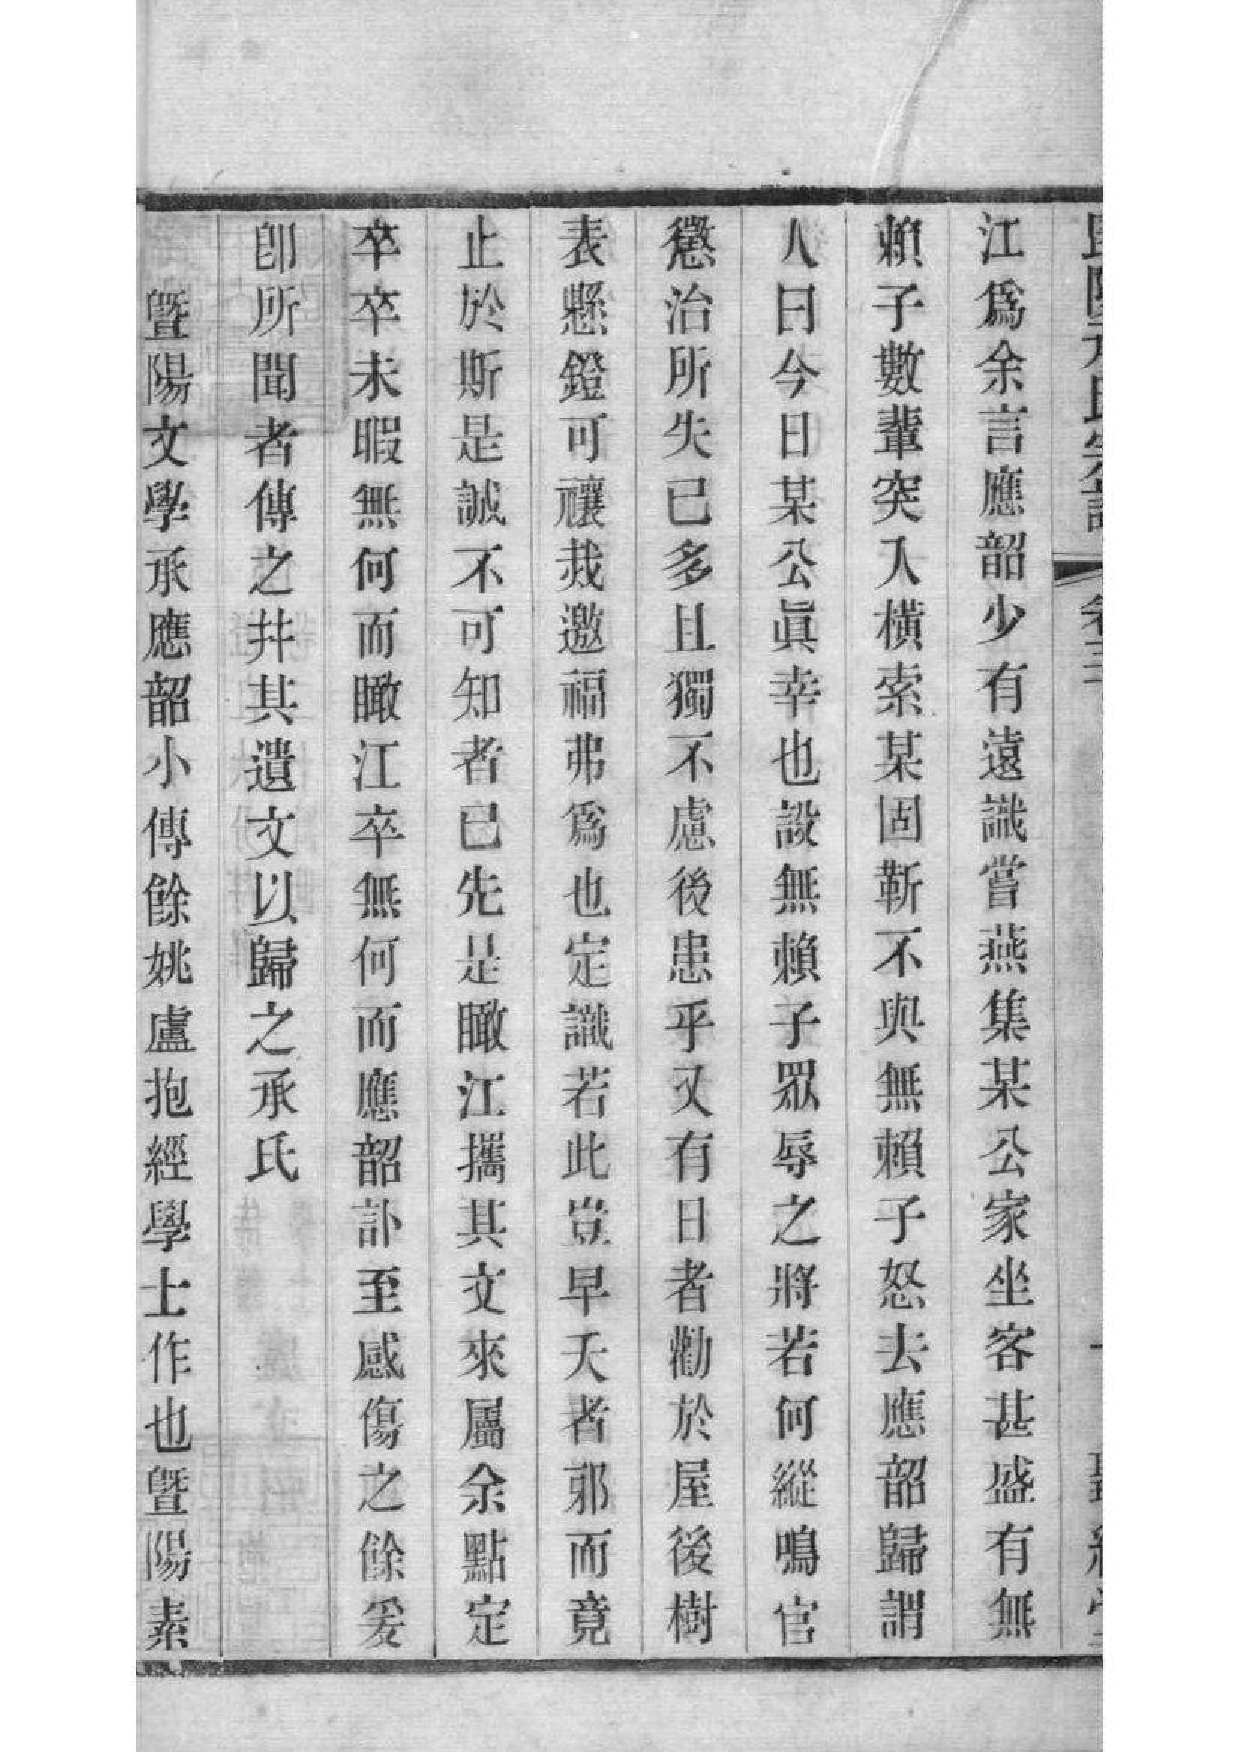 江爲余言應韶少有遠識嘗燕集某公家坐客甚盛有無
賴子數輩突入橫索某固靳不與無賴子怒去應韶歸謂
人曰今日某公眞幸也設無賴子眾辱之將若何縱鳴官
懲治所失已多且獨不慮後患乎又有日者勸於屋後樹
表懸鐙可禳烖邀福弗爲也定識若此豈早夭者邪而竟
止於斯是誠不可知者已先是瞰江攜其文來屬余點定
卒卒未暇無何而瞰江卒無何而應韶訃至感傷之餘爰
卽所聞者傳之幷其遺文以歸之承氏
曁陽文學承應韶小傳餘姚盧抱經學士作也曁陽素